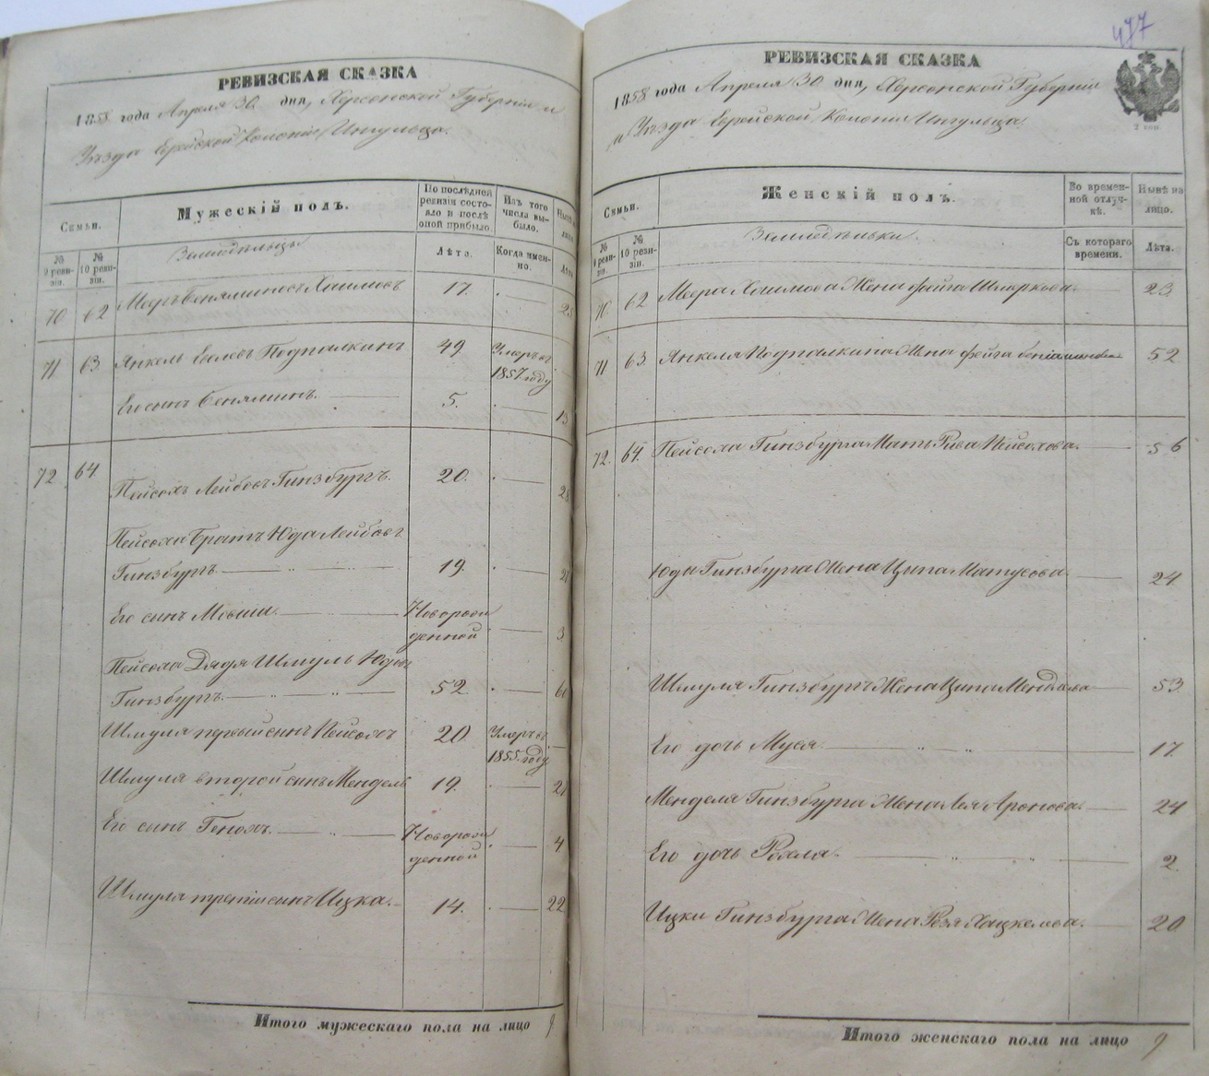 РЕВИЗСКАЯ СКАЗКА
1858 года Апреля 30 дня, Херсонской Губерніи и
Уѣзда Еврейской Колоніи Ингульца.
Семьи.
Мужескій полъ.
По послѣдней ревизіи состояло и послѣ оной прибыло.
Изъ того числа выбыло.
№ 9 ревизіи.
№ 10 ревизіи.
Земледѣльцы
Лѣта.
Когда именно.
70 62 Мееръ Беняминовъ Хаимовъ 17.
71 63 Янкель Подпалкинъ 49 Умеръ въ 1857 году
Его сынъ Беняминъ. 5.
72 64 Пейсахъ Лейбовъ Гинзбургъ. 20.
Пейсаха Братъ Юда Лейбовъ
Гинзбургъ. 19.
Его сынъ Мовша. Новорожденной 3
Пейсаха Дядя Шмуль Юдовъ
Гинзбургъ. 52
Шмуля первый сынъ Пейсахъ 20. Умеръ въ 1855 году
Шмуля второй сынъ Мендель 19.
Его сынъ Генохъ. Новорожденной 4
Шмуля третій сынъ Ицка. 14. 22
Итого мужескаго пола на лицо 9
477
РЕВИЗСКАЯ СКАЗКА
1858 года Апреля 30 дня, Херсонской Губерніи
и Уѣзда Еврейской Колоніи Ингульца
Семьи.
Женскій полъ.
Во временной отлучкѣ.
Нынѣ на лицо.
№ 9 ревизіи.
№ 10 ревизіи.
Земледѣльки.
Съ котораго времени.
Лѣта.
70 62 Меера Хаимова Жена Файга Шмеркова 23
71 63. Янкеля Подпалкина Жена Фейга Беніаминова 52
72. 64. Пейсаха Гинзбурга Мать Рива Пейсахова. 56
Юды Гинзбурга Жена Ципа Матусова 24
Шмуля Гинзбургъ Жена Ципа Менделева 53
Его дочь Муся. 17.
Менделя Гинзбурга Жена Лея Аронова. 24
Его дочь 2.
Ицки Гинзбурга Жена Рейзя Хацкелева. 20
Итого женскаго пола на лицо 9